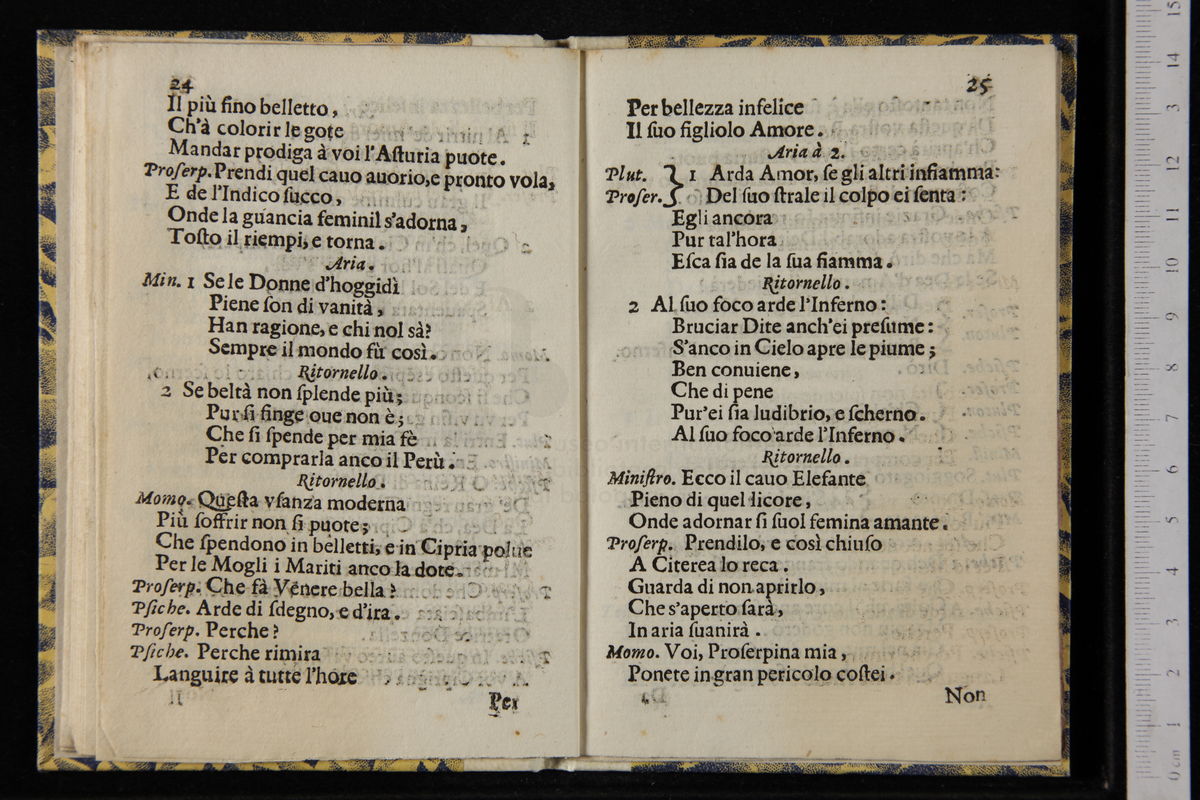 24
Il più fino belletto,
Ch'à colorir le gote
Mandar prodiga à voi l'Aſturia puote.
Proſerp. Prendi quel cauo auorio, e pronto vola,
E de l'Indico ſucco,
Onde la guancia feminil s'adorna,
Toſto il riempi, e torna.
Aria.
Min. 1 Se le Donne d'hoggidì
Piene ſon di vanità,
Han ragione, e chi nol sà?
Sempre il mondo fù così.
Ritornello.
2 Se beltà non ſplende più;
Pur ſi finge oue non è;
Che ſi ſpende per mia fè
Per comprarla anco il Perù.
Ritornello.
Momo. Queſta vſanza moderna
Più ſoffrir non ſi puote;
Che ſpendono in belletti, e in Cipria polue
Per le Mogli i Mariti anco la dote.
Proſerp. Che fà Venere bella?
Pſiche. Arde di ſdegno, e d'ira.
Proſerp. Perche?
Pſiche. Perche rimira
Languire à tutte l'hore
Per
25
Per bellezza infelice
Il ſuo figliolo Amore.
Aria à 2.
Plut. } 1 Arda Amor, ſe gli altri infiamma:
Proſer. } Del ſuo ſtrale il colpo ei ſenta:
Egli ancora
Pur tal'hora
Eſca ſia de la ſua fiamma.
Ritornello.
2 Al ſuo foco arde l'Inferno:
Bruciar Dite anch'ei preſume:
S'anco in Cielo apre le piume;
Ben conuiene,
Che di pene
Pur'ei ſia ludibrio, e ſcherno.
Al ſuo foco arde l'Inferno.
Ritornello.
Miniſtro. Ecco il cauo Elefante
Pieno di quel licore,
Onde adornar ſi ſuol femina amante.
Proſerp. Prendilo, e così chiuſo
A Citerea lo reca.
Guarda di non aprirlo,
Che s'aperto ſarà,
In aria ſuanirà.
Momo. Voi, Proſerpina mia,
Ponete in gran pericolo coſtei.
Non